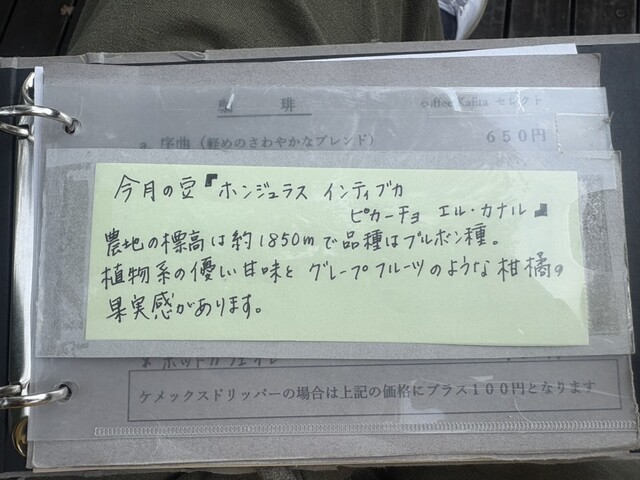 珈　琲　　coffee Kalita セレクト
a. 序曲（軽めのさわやかなブレンド）　６５０円
今月の豆『ホンジュラス インティブカ
ピカーチョ エル・カナル』
農地の標高は約1850mで品種はブルボン種。
植物系の優しい甘味と グレープフルーツのような柑橘の
果実感があります。
ケメックスドリッパーの場合は上記の価格にプラス１００円となります